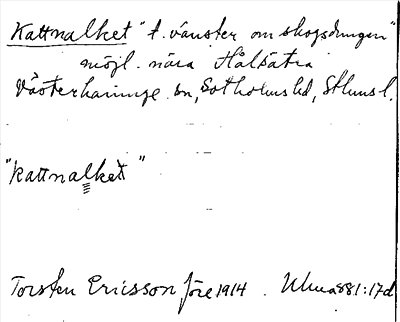 Kattnalket "t. vänster om skogsdungen"
möjl. nära Hålsätra
Västerhaninge sn, Sotholms hd, Sthlms l.
"kattnalket"
Torsten Ericsson före 1914. Uma 881:17d